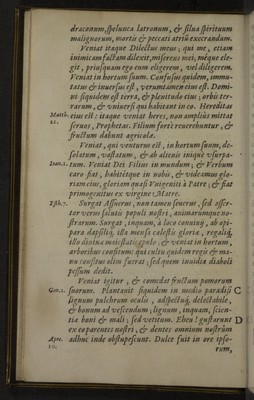 draconum, spelunca latronum, & silua spirituum
malignorum, mortis & peccati atriũ execrandum.
Veniat itaque Dilectus meus; qui me, etiam
inimicam factam dilexit, misereus mei, méque ele-
git, priusquam ego eum eligerem, vel diligerem.
Veniat in hortum suum. Confusus quidem, immu-
tatus & inuersus est, verumtamen eius est. Domi-
ni siquidem est terra, & plenitudo eius; orbis ter-
rarum, & vniuersi qui habitant in eo. Hereditas
Matth.
21.
eius est: itaque veniat heres, non ampliùs mittat
seruos, Prophetas. Filium fortè reuerebuntur, &
fructum dabunt agricolæ.
Veniat, qui venturus est, in hortum suum, de-
solatum, vastatum, & ab alienis iniquè vsurpa-
Ioan.1.
tum. Veniat Dei Filius in mundum; & Verbum
caro fiat, habitétque in nobis, & videamus glo-
riam eius, gloriam quasi Vnigeniti à Patre; & fiat
primogenitus ex virgine Matre.
Esth.7.
Surgat Assuerus, non tamen seuerus, sed asser-
tor verus salutis populi nostri, animarumque no-
strarum. Surgat, inquam, à loco conuiuij, ab opi-
para dapsilíq; illa mensa cælestis gloriæ, regalíq,
illo diuinæ maiestatis epulo, & veniat in hortum,
arboribus consitum: qui cultu quidem regis & ma-
nu consitus olim fuerat; sed quem inuidia diaboli
pessùm dedit.
Veniat igitur, & comedat fructum pomorum
Gen.2.
suorum. Plantauit siquidem in medio paradisi
C
lignum pulchrum oculis, adspectuq́; delectabile,
& bonum ad vescendum; lignum, inquam, scien-
tiæ boni & mali; sed vetitum. Eheu! gustarunt
D
ex eo parentes nostri, & dentes omnium nostrûm
Apoc.
10.
adhuc inde obstupescunt. Dulce fuit in ore ipso-
rum,